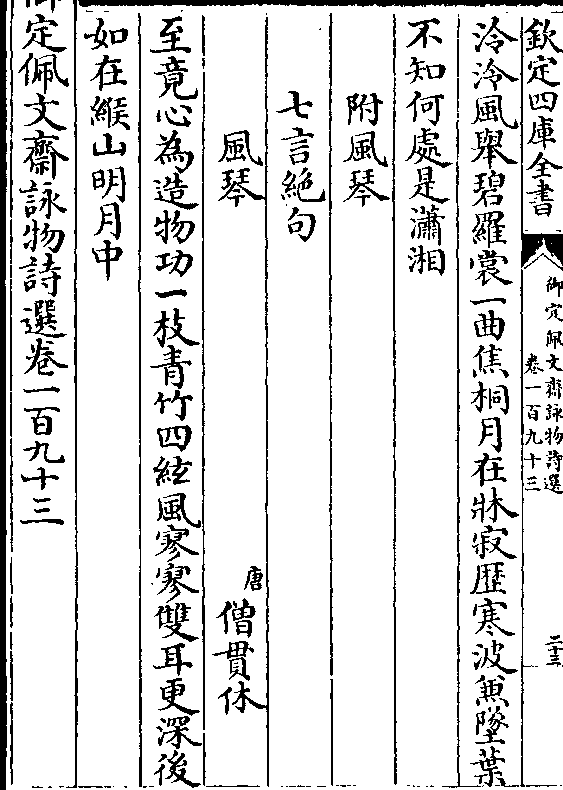 欽定四庫全書
御定佩文齋詠物詩選
卷一百九十三
二十三
泠泠風舉碧羅裳一曲焦桐月在牀寂歴寒波兼墜葉
不知何處是瀟湘
附風琴
七言絶句
風琴
唐僧貫休
至竟心為造物功一枝青竹四絃風寥寥雙耳更深後
如在緱山明月中
御定佩文齋詠物詩選卷一百九十三